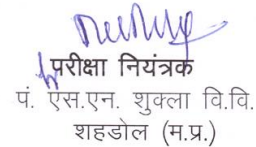 परीक्षा नियंत्रक
पं. एस.एन. शुक्ला वि.वि.
शहडोल (म.प्र.)